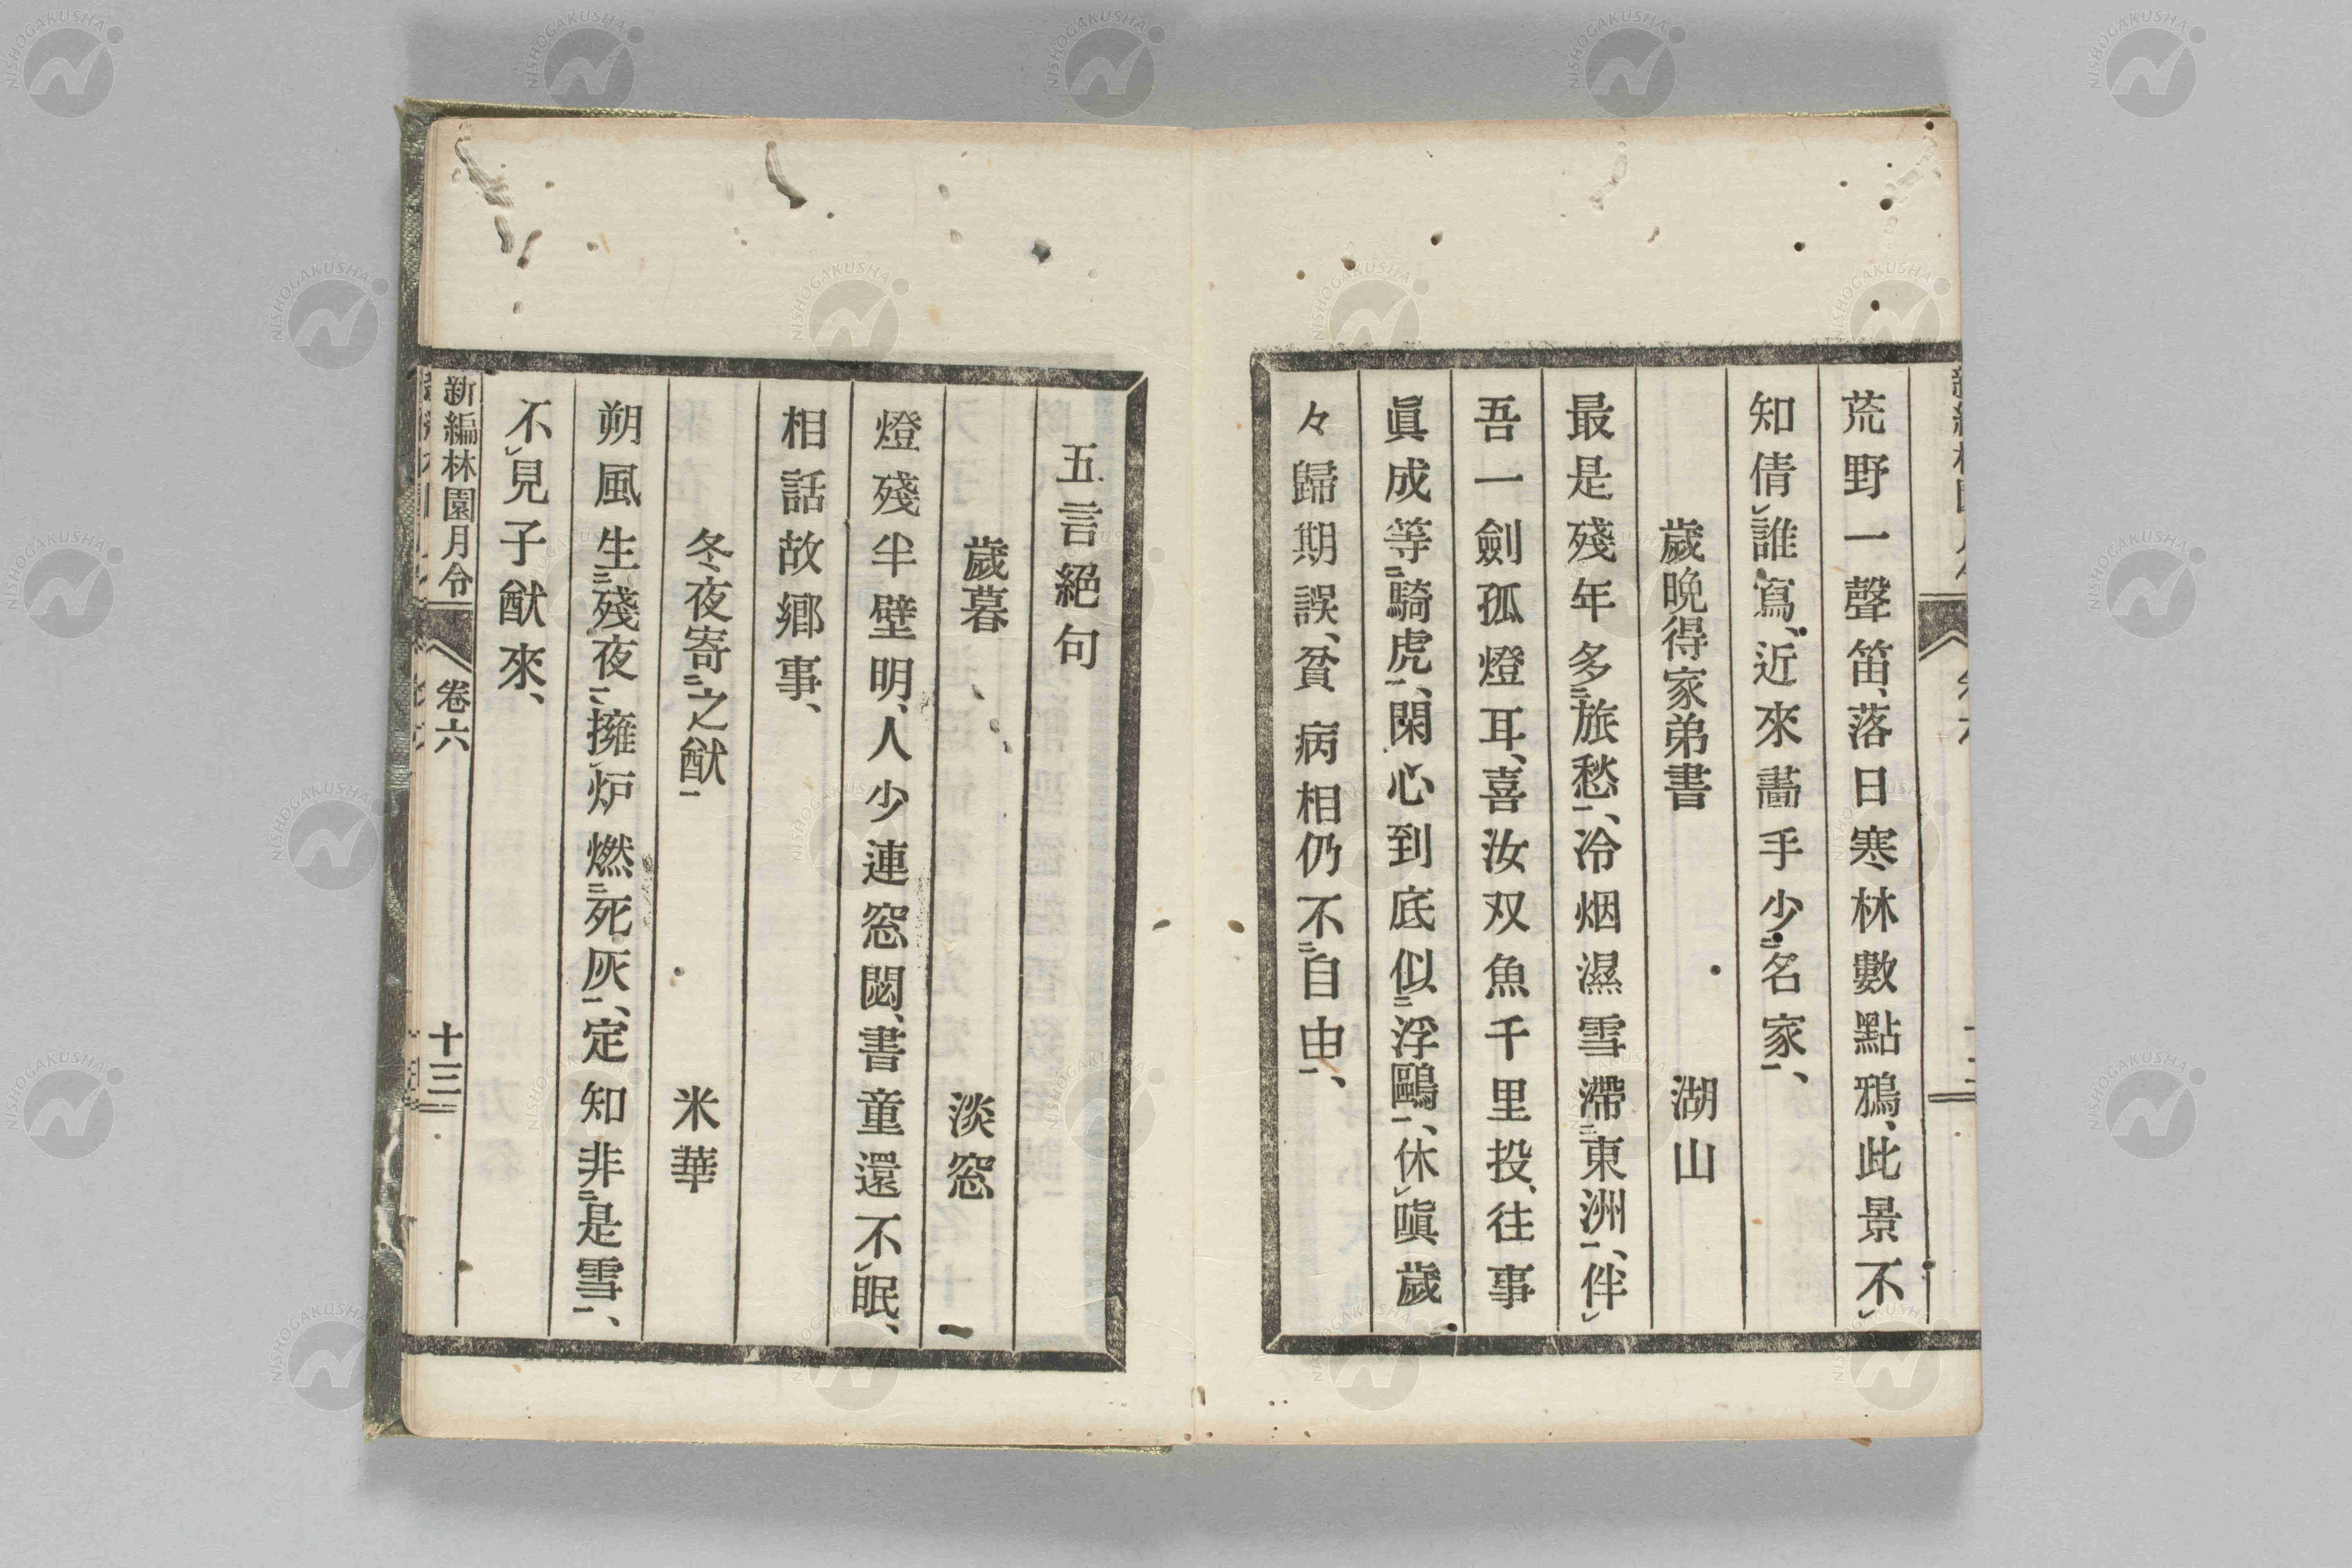 荒野一聲笛、落日寒林數點鴉、此景不㆑
知倩㆑誰寫、近來畵手少㆓名家㆒、
歲晩得家弟書　湖山
最是殘年多㆓旅愁㆒、冷烟濕雪滯㆓東洲㆒、伴㆑
吾一劍孤燈耳、喜汝双魚千里投、往事
眞成等㆓騎虎㆒、閑心到底似㆓浮鷗㆒、休㆑嗔歲
々歸期誤、貧病相仍不㆓自由㆒、
五言絕句
歲暮　淡窓
燈殘半壁明、人少連窓閟、書童還不㆑眠、
相話故鄉事、
冬夜寄㆓之猷㆒　米華
朔風生㆓殘夜㆒、擁㆑炉燃㆓死灰㆒、定知非㆓是雪㆒、
不㆑見子猷來、
新編林園月令　卷六　十三
NISHOGAKUSHA